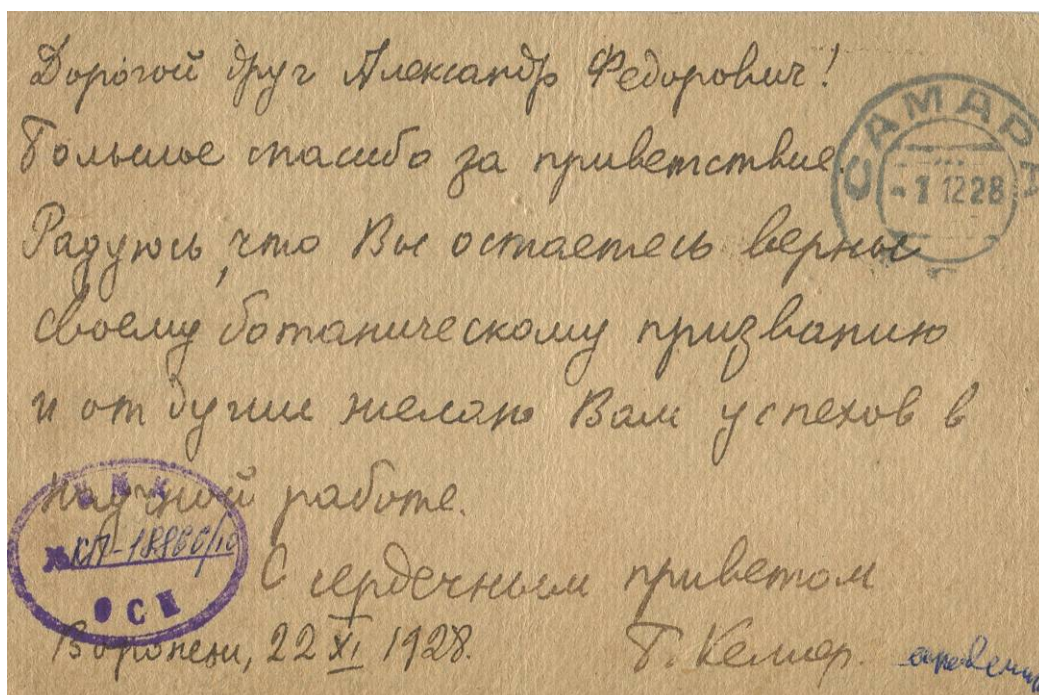 Дорогой друг Александр Федорович!
Большое спасибо за приветствие.
Радуюсь, что Вы остаетесь верны
своему ботаническому призванию
и от души желаю Вам успехов в
научной работе.
С сердечным приветом
Воронеж, 22 XI 1928. Б. Келлер.
САМАРА
- 1 12 28
КП-18866/10